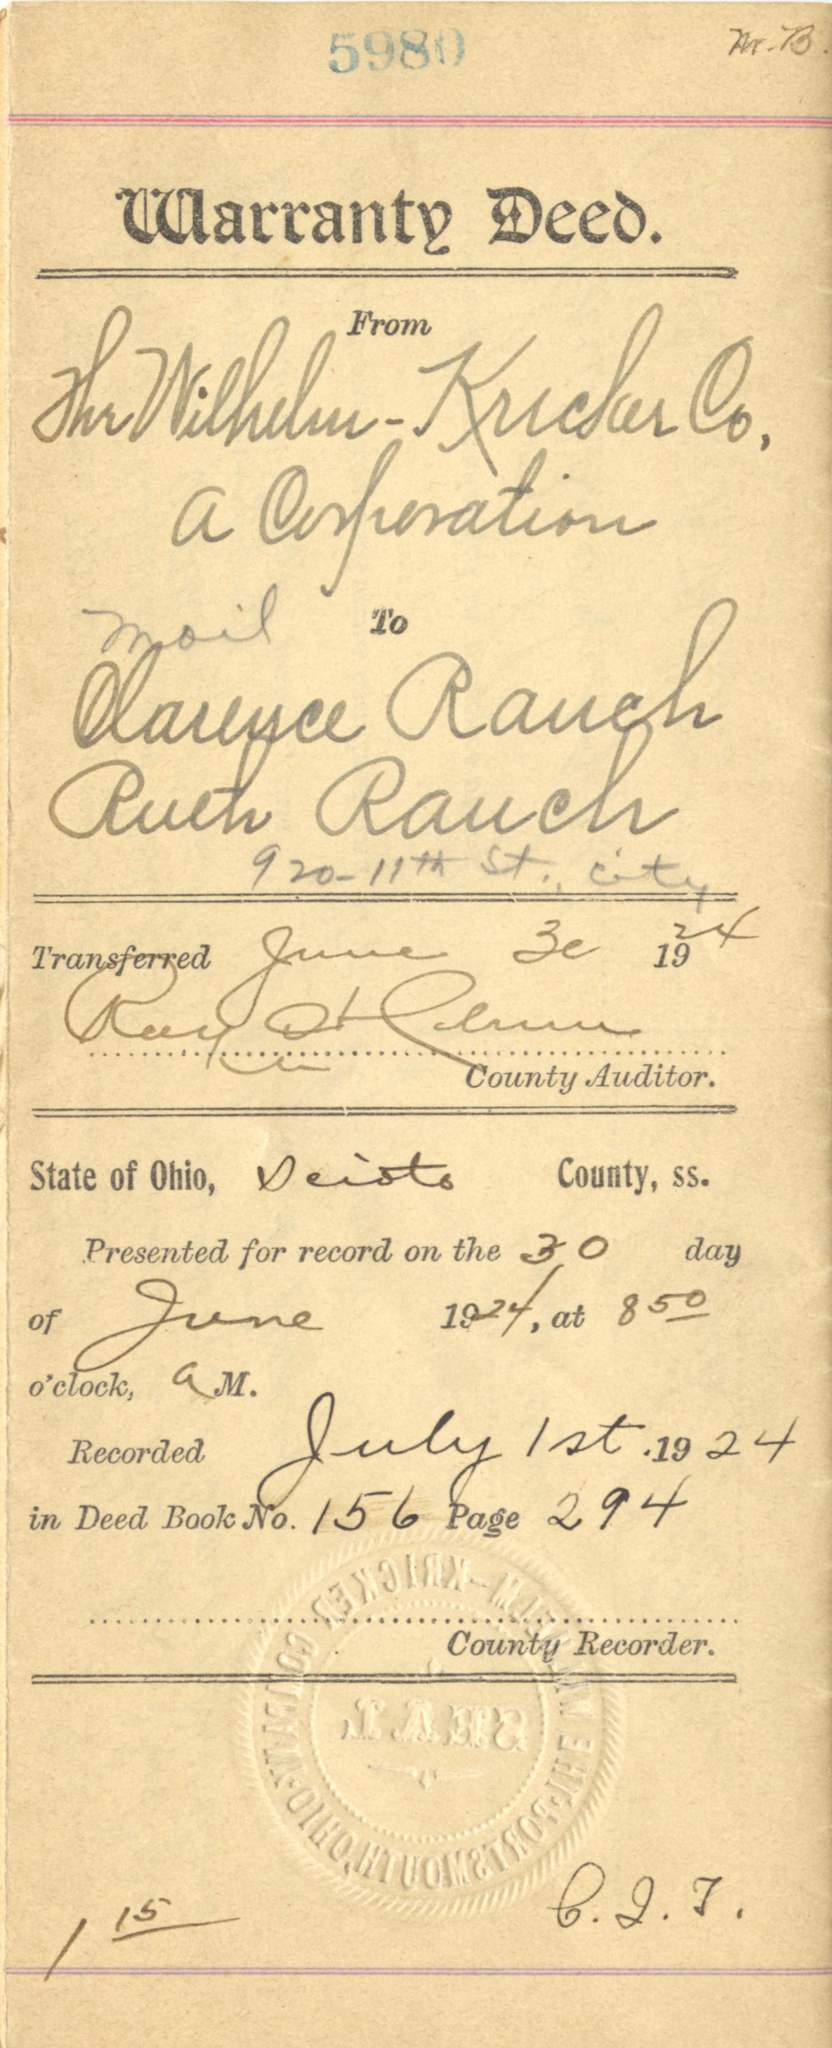 5980
Warranty Deed.
From
The Wilhelm-Kricker Co,
A Corporation
mail To
Clarence Rauch
Ruth Rauch
920-11th St., City
Transferred June 30 1924
Ray
County Auditor.
State of Ohio, Scioto County, ss.
Presented for record on the 30 day
of June 1924, at 8 50
o'clock, a M.
Recorded July 1st. 1924
in Deed Book No. 156 Page 294
County Recorder.
THE WILHELM-KRICKER COMPANY PORTSMOUTH, OHIO
SEAL
1 15